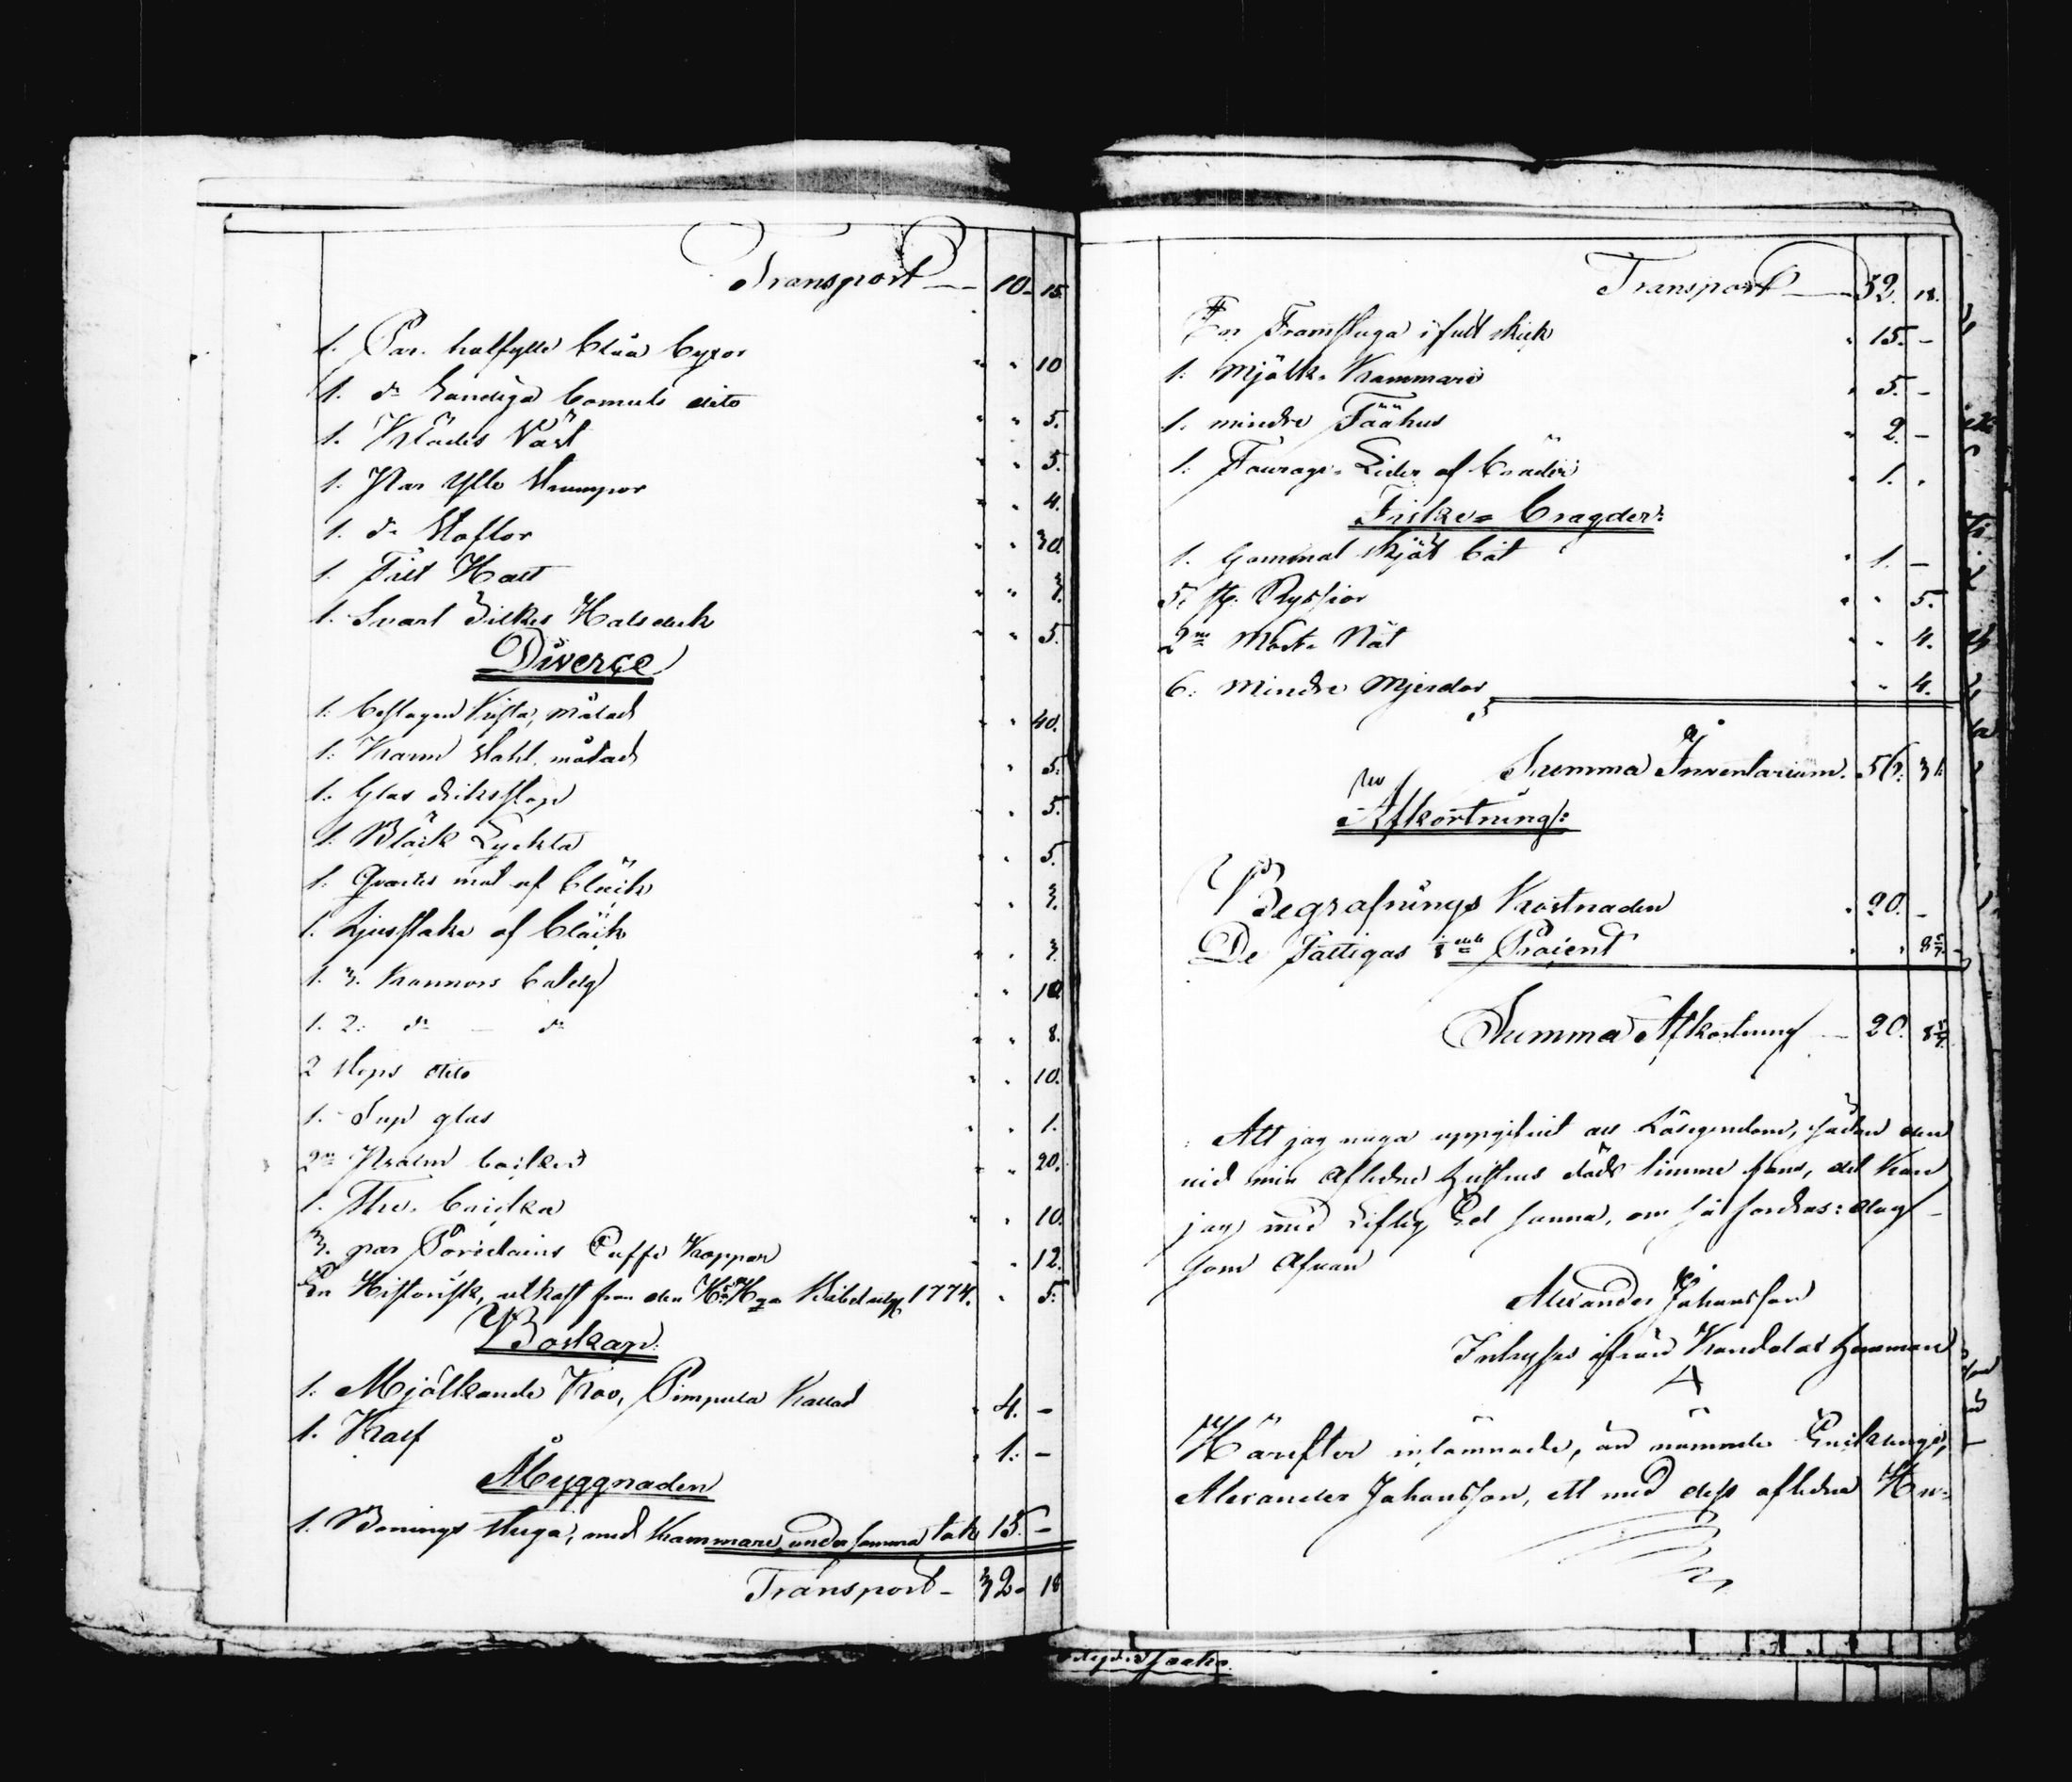 Transport — 10. 15.
1. Par. halfylle blåa byxor " " 10
1. do Randiga bomuls dito " " 5.
1. Klädes Väst " " 5.
1. Par Ylle Strumpor " " 4.
1. do Stöflor " " 30.
1. Filt Hatt " " 3.
1. Svart Silkes Halsduk " " 5.
Diverçe
1. beslagen Kista, målad " " 40.
1. Karm Stohl, målad " 5.
1. Glas " 5.
1. Bläck Lyckta " " 5.
1. Qvarters mål af bläck " " 3.
1. Ljusstake af bläck " " 3.
1. 3. Kannors " " 10
1. 2: do — do " " 8.
2 Stops dito " " 10.
1. Sup glas " " 1.
2ne bäcken " " 20.
1. The. bricka " " 10.
3. par Porcelains Caffe Koppar " " 12.
En Historisk, utkast från den 1774. " 5.
Boskap.
1. Mjölkande Koo, Pimpula Kallad " 4. –
1. Kalf " 1. –
Åbyggnaden
1. Bonings Stuga, med Kammare under samma tak 15. –
Transport – 32. 18
Transport — 32. 18.
En Framstuga i fult skick " 15. –
1. Mjölk. Kammare " 5. –
1. mindre Fäähus " 2. –
1. Fourage. Lider af bräder " 1. "
Fiske = bragder:
1. Gammal Skjöt båt " 1. –
5. st. Ryssior " " 5.
2ne Mört. Nät " " 4.
6. Mindre Mjerdor " " 4.
Summa Inventarium. 56. 31.
Afkortning:
Begrafnings Kostnaden " 20. –
De Fattigas Procent " " 8
Summa Afkortning — 20. 8
Att jag noga uppgifvit all Lösegendom, sådan den
vid min Aflidne Hustrus döds timme fans, det kan
jag med Liflig Ed sanna, om så fordras: dag
som Ofvan
Alexander Johansson
Inhyses ifrån Kandolas Hemman
A
Härefter inlämnade, än nämnde Enklinge,
Alexander Johansson, ett med dess aflidna Hu=